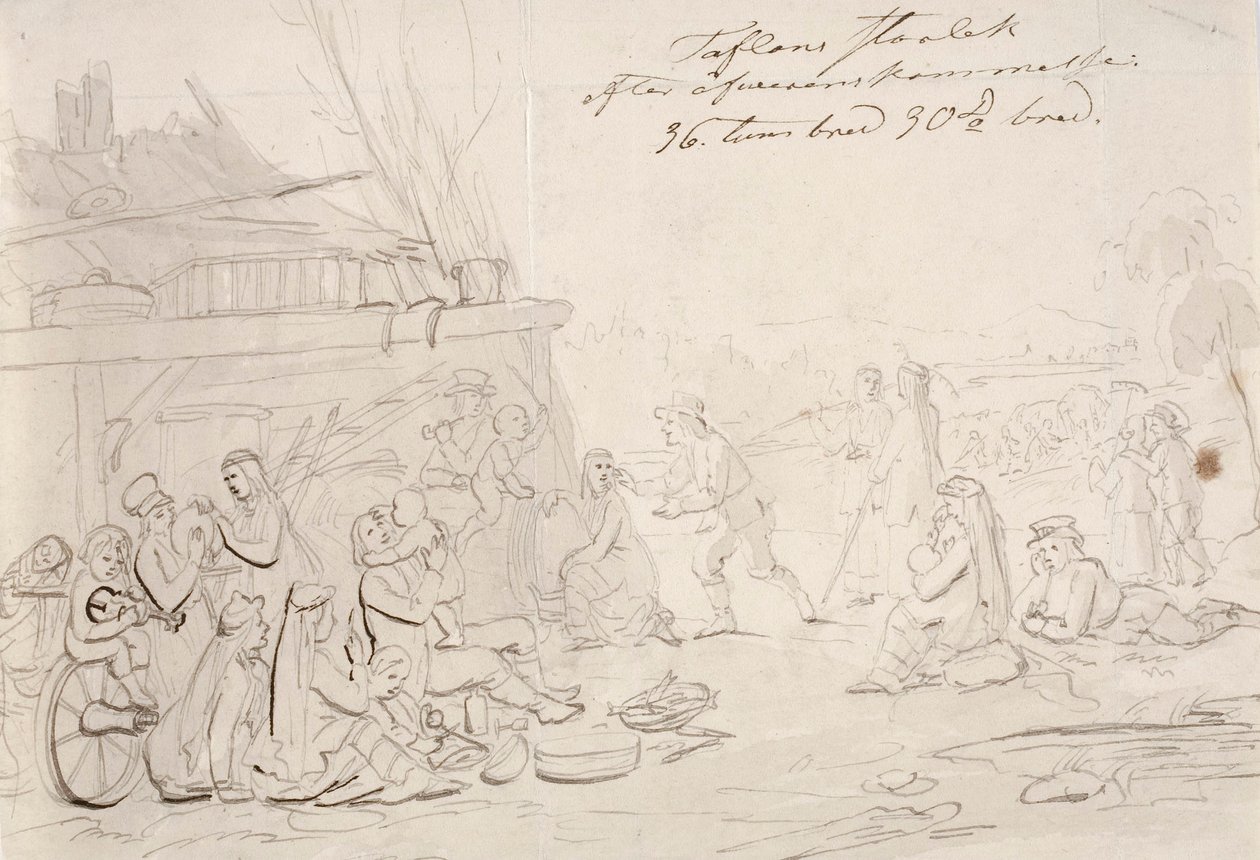 Taflans storlek
efter öfverenskommelse.
36. tums bred 30 D⁰ bred.